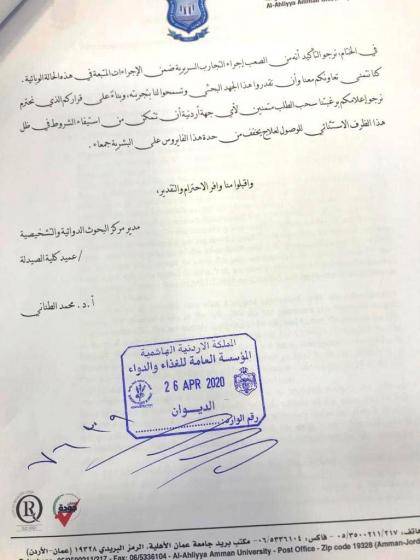 Al-Ahliyya Amman University
في الختام، نرجو التأكيد أنه من الصعب إجراء التجارب السريرية ضمن الإجراءات المتبعة في هذه الحالة الوبائية.
كنا نتمنى تعاونكم معنا وأن تقدروا هذا الجهد البحثي وتسمحوا لنا بتجربته، وبناءً على قراركم الذي نحترم
نرجو إعلامكم برغبتنا سحب الطلب متمنين لأي جهة أردنية أن تتمكن من استيفاء الشروط في ظل
هذا الظرف الاستثنائي للوصول لعلاج يخفف من حدة هذا الفايروس على البشرية جمعاء.
واقبلوا منا وافر الاحترام والتقدير،
مدير مركز البحوث الدوائية والتشخيصية
/عميد كلية الصيدلة
أ.د. محمد الطناني
المملكة الاردنية الهاشمية
المؤسسة العامة للغذاء والدواء
26 APR 2020
الديوان
رقم الوارد:
هاتف: ٠٥/٣٥٠٠٢١١/٢١٧ - فاكس: ٠٦/٥٣٣٦١٠٤ - مكتب بريد جامعة عمان الأهلية، الرمز البريدي ١٩٣٢٨ (عمان-الأردن)
05/3500211/217 - Fax: 06/5336104 - Al-Ahliyya Amman University - Post Office - Zip code 19328 (Amman-Jord